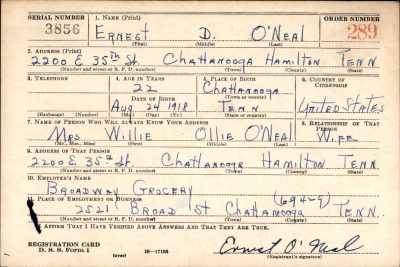 SERIAL NUMBER 1. NAME (Print) ORDER NUMBER
3856 ERNEST D. O'NEAL 289
(First) (Middle) (Last)
2. ADDRESS (Print)
2200 E 35th St. Chattanooga Hamilton Tenn
(Number and street or R. F. D. number) (Town) (County) (State)
3. TELEPHONE 4. AGE IN YEARS 5. PLACE OF BIRTH 6. COUNTRY OF CITIZENSHIP
22 Chattanooga
DATE OF BIRTH (Town or county)
Aug 24 1918 Tenn United States
(Exchange) (Number) (Mo.) (Day) (Yr.) (State or country)
7. NAME OF PERSON WHO WILL ALWAYS KNOW YOUR ADDRESS 8. RELATIONSHIP OF THAT PERSON
Mrs Willie Ollie O'Neal Wife
(Mr., Mrs., Miss) (First) (Middle) (Last)
9. ADDRESS OF THAT PERSON
2200 E 35th St. Chattanooga Hamilton Tenn.
(Number and street or R. F. D. number) (Town) (County) (State)
10. EMPLOYER'S NAME
Broadway Grocery (694-9)
11. PLACE OF EMPLOYMENT OR BUSINESS
2521 Broad St Chattanooga Tenn.
(Number and street or R. F. D. number) (Town) (County) (State)
I AFFIRM THAT I HAVE VERIFIED ABOVE ANSWERS AND THAT THEY ARE TRUE.
REGISTRATION CARD
D. S. S. Form 1 (over) 16-17105 Ernest O'Neal
(Registrant's signature)